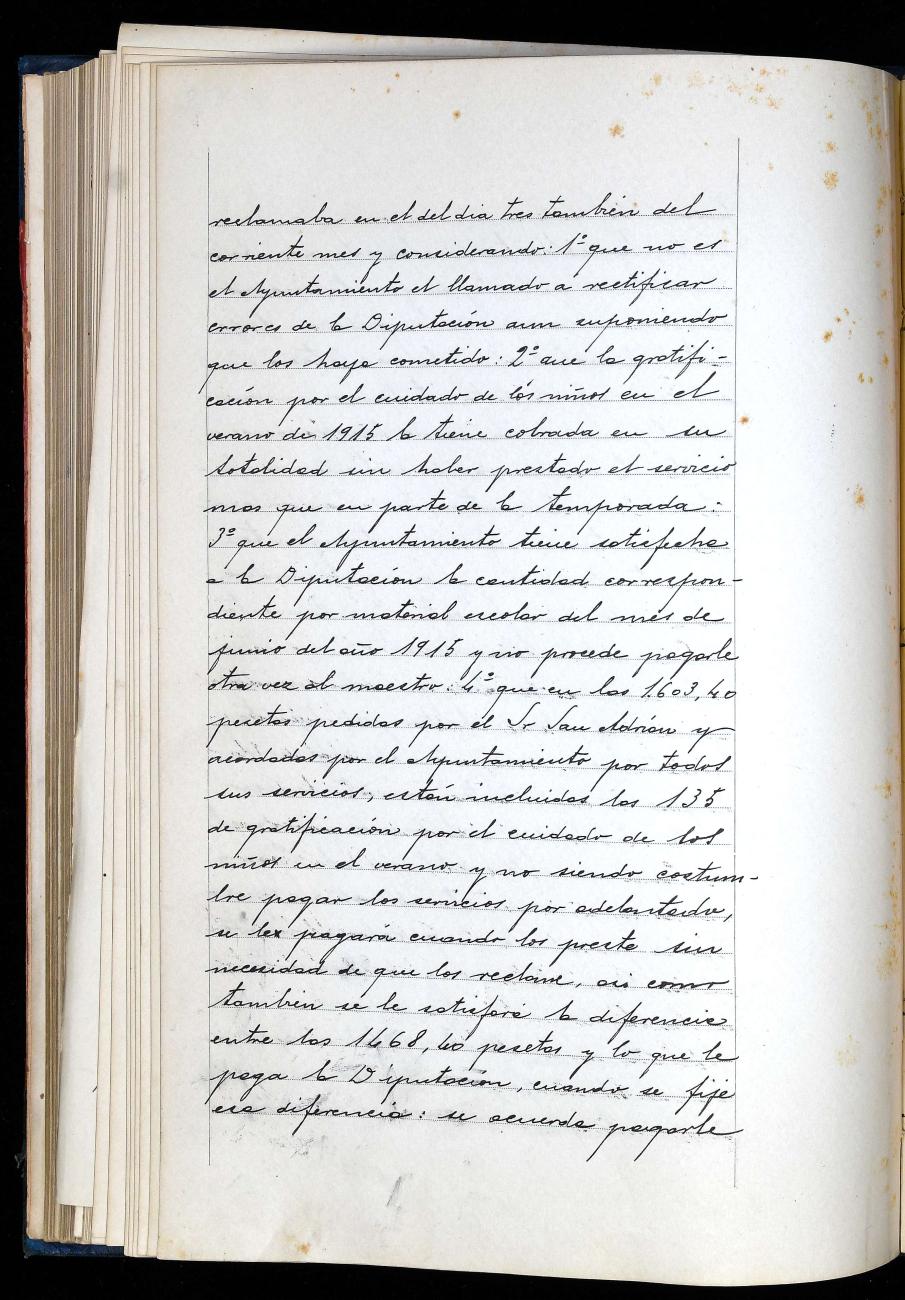 reclamaba en el del dia tres tambien del
corriente mes y considerando: 1º que no es
el Ayuntamiento el llamado a rectificar
errores de la Diputación aun suponiendo
que los haya cometido: 2º que la gratifi-
cación por el cuidado de los niños en el
verano de 1915 la tiene cobrada en su
totalidad sin haber prestado el servicio
mas que en parte de la temporada:
3º que el Ayuntamiento tiene satisfecha
a la Diputación la cantidad correspon-
diente por material escolar del mes de
junio del año 1915 y no procede pagarle
otra vez al maestro: 4º que en las 1.603,40
pesetas pedidas por el Sr San Adrián y
acordadas por el Ayuntamiento por todos
sus servicios, están incluidas las 135
de gratificación por el cuidado de los
niños en el verano y no siendo costum-
bre pagar los servicios por adelantado,
se les pagará cuando los preste sin
necesidad de que los reclame, asi como
tambien se le satisfará la diferencia
entre las 1468,40 pesetas y lo que le
paga la Diputación, cuando se fije
esa diferencia: se acuerda pagarle